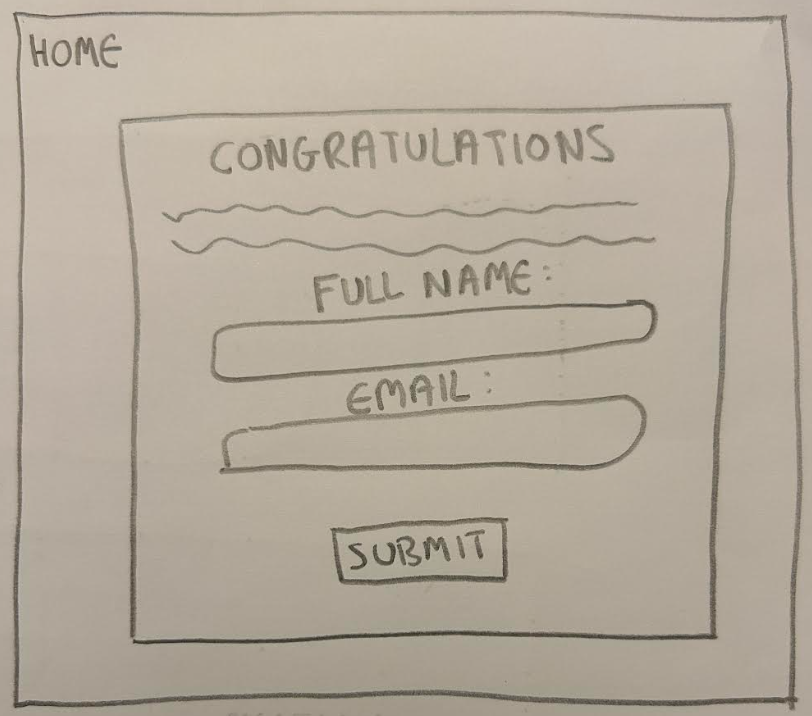 HOME
CONGRATULATIONS
FULL NAME:
EMAIL:
SUBMIT